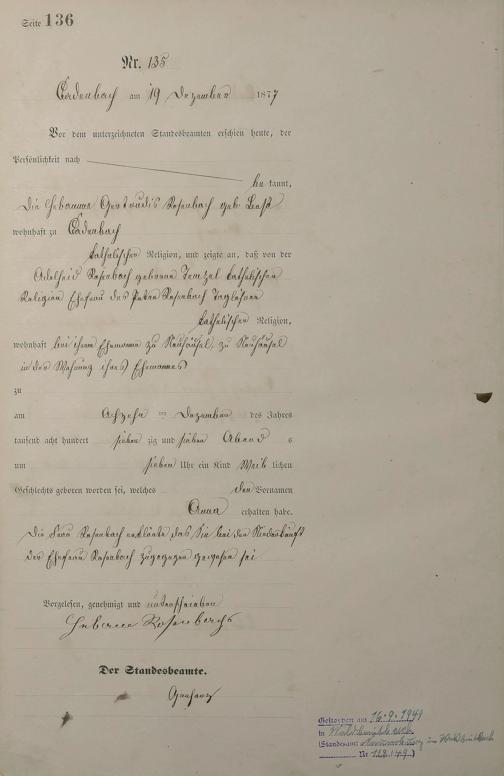 Seite 136
Nr. 135
Cadenbach am 19 Dezember 1877
Vor dem unterzeichneten Standesbeamten erschien heute, der
Persönlichkeit nach
be kannt,
die Hebamme Gertrudis Rosenbach geb.
wohnhaft zu Cadenbach
katholischer Religion, und zeigte an, daß von der
Adelheid Rosenbach geborene katholischer
Religion Ehefrau des Peter Rosenbach Taglöhner
katholischer Religion,
wohnhaft bei ihrem Ehemanne zu Neuhäusel, zu Neuhäusel
in der Wohnung ihres Ehemannes
zu
am Achzehn ten Dezember des Jahres
tausend acht hundert sieben zig und sieben Abend s
um sieben Uhr ein Kind Weib lichen
Geschlechts geboren worden sei, welches den Vornamen
Anna erhalten habe.
Die Frau Rosenbach erklärte das Sie bei der Niederkunft
der Ehefrau Rosenbach zugegegen gewesen sei
Vorgelesen, genehmigt und unterschrieben
Hebame Rosenbach
Der Standesbeamte.
Gestorben am 16.9.1941
in
(Standesamt
Nr.